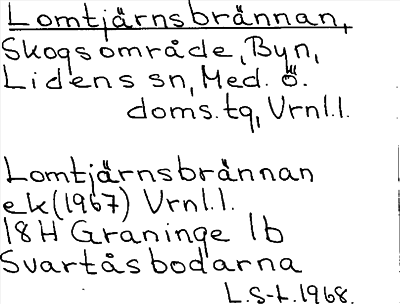 Lomtjärnsbrännan,
Skogsområde, Byn,
Lidens sn, Med. ö.
doms.tg, Vrnl.l.
Lomtjärnsbrännan
ek (1967) Vrnl.l.
18H Graninge 1b
Svartåsbodarna
L.S-t. 1968.